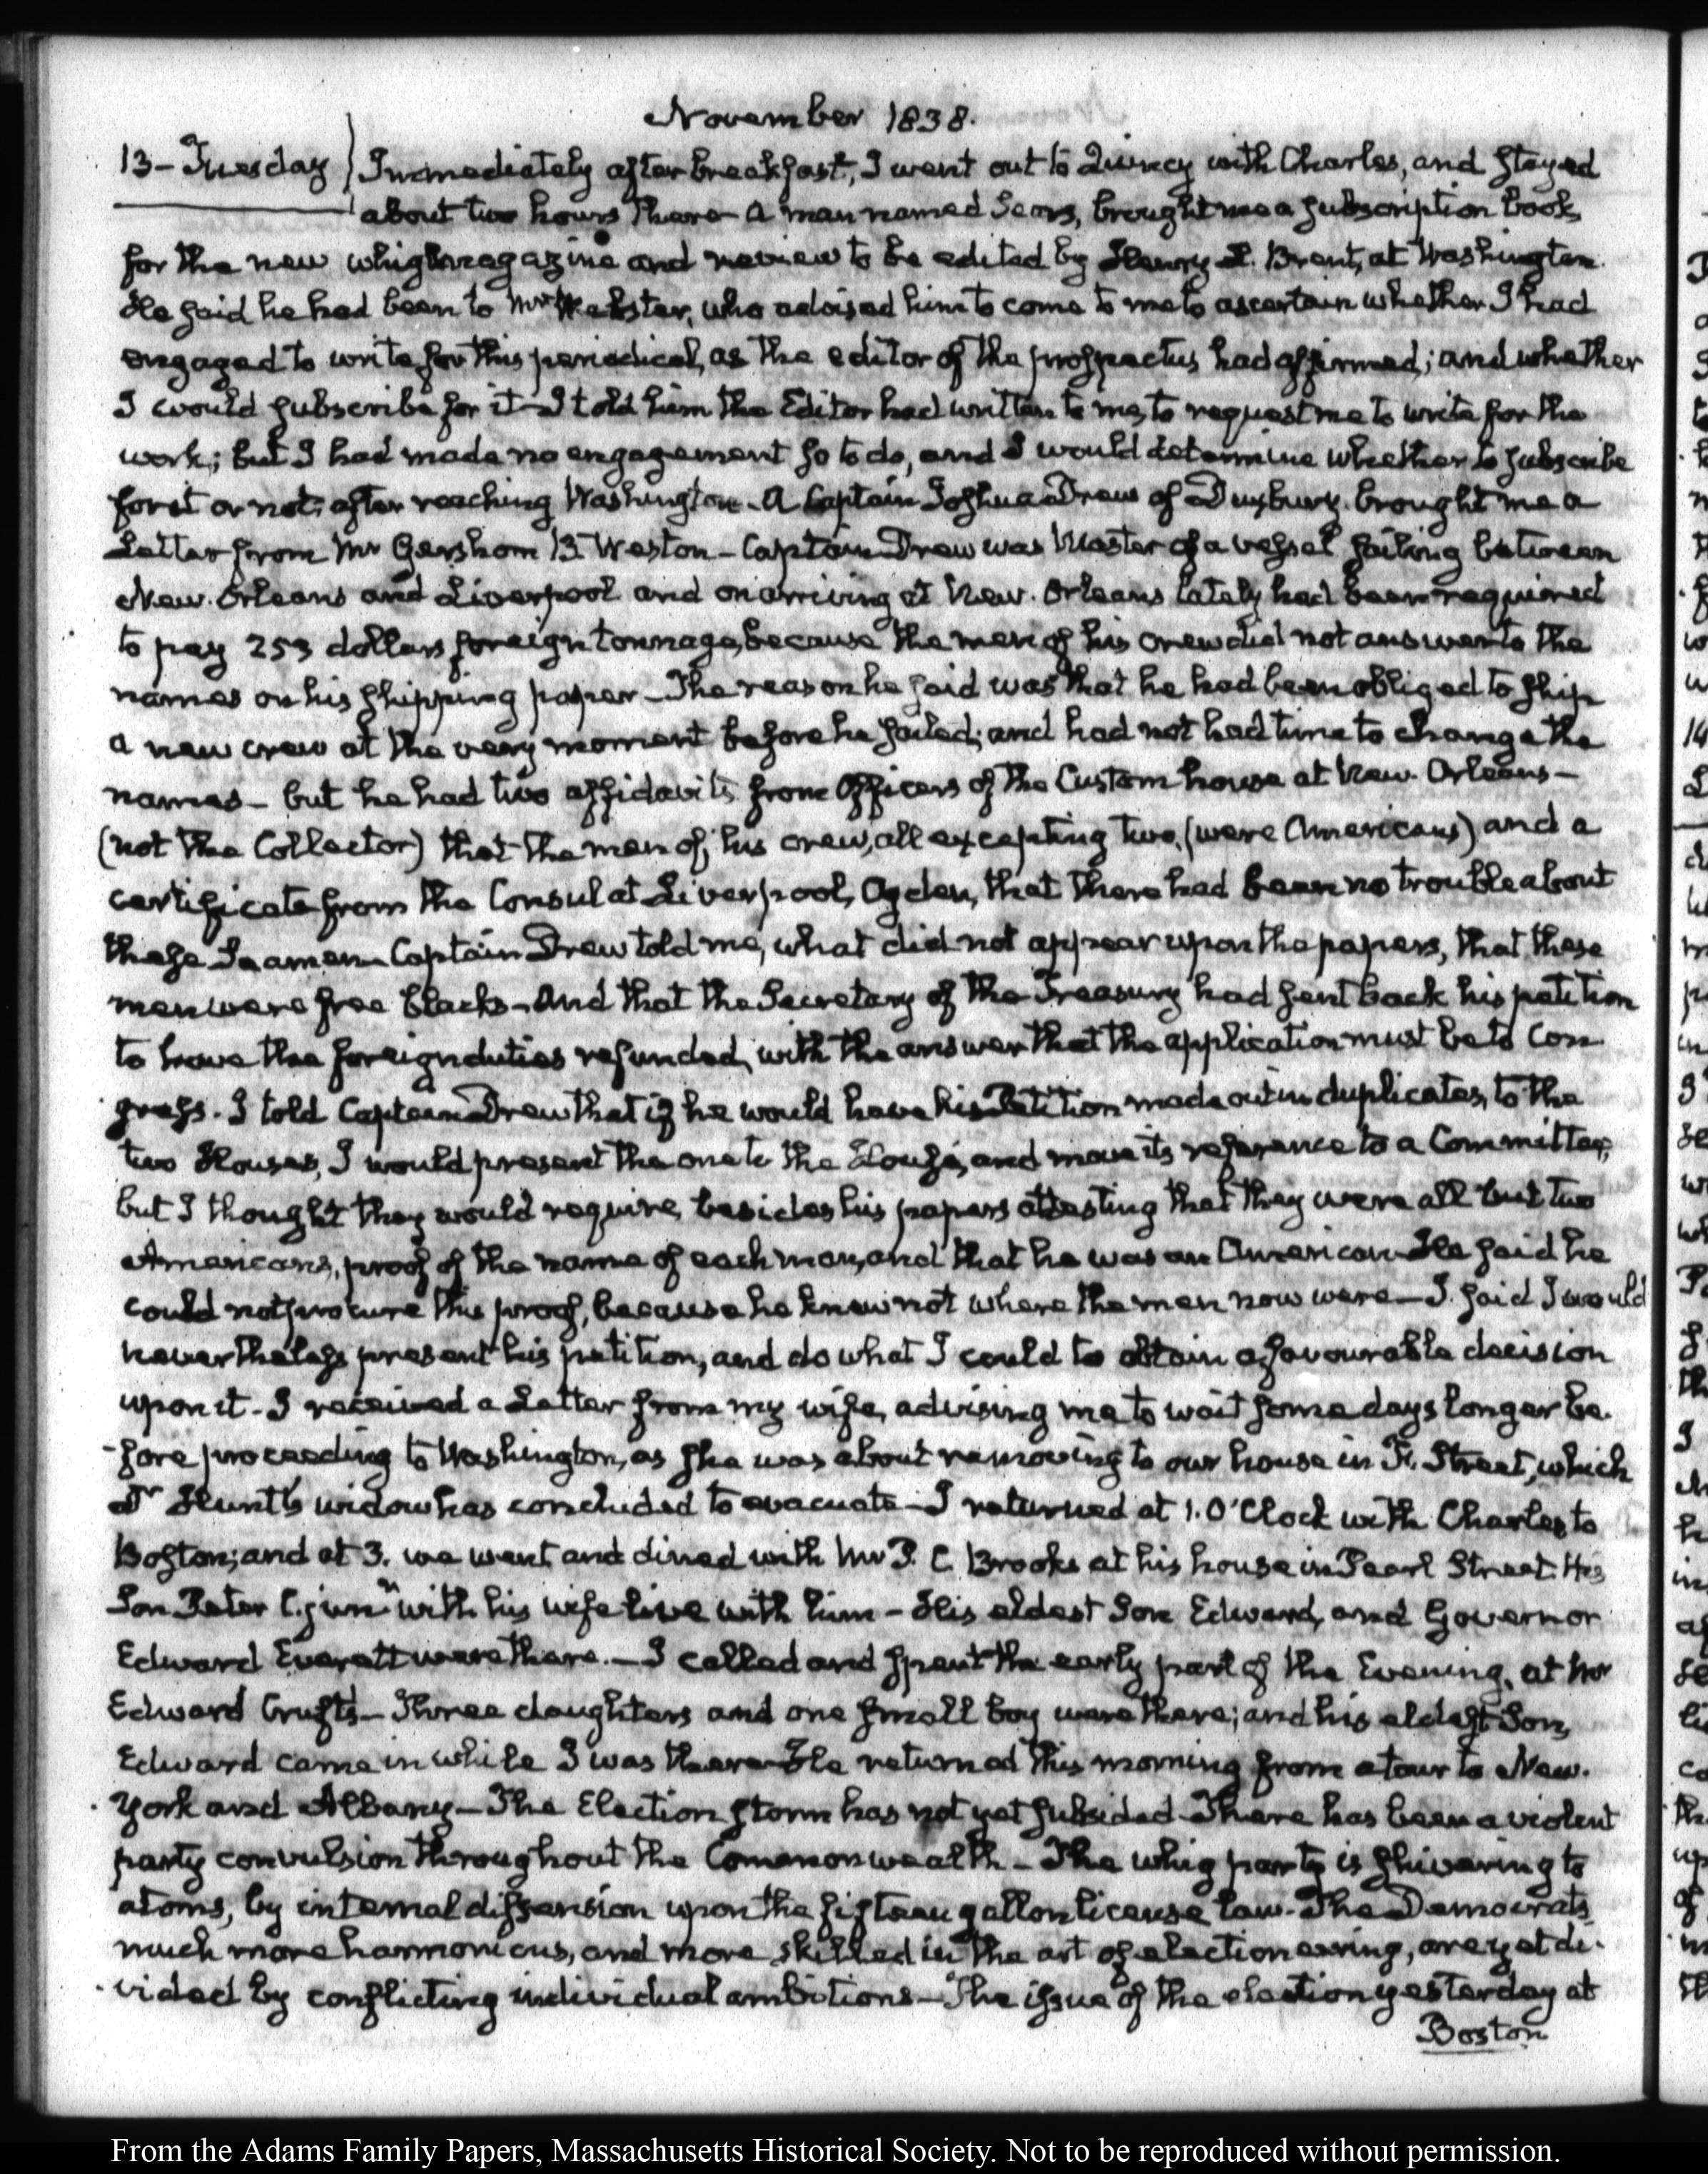 November 1838.
13 - Tuesday Immediately after breakfast, I went out to Quincy with Charles, and stayed
about two hours there - A man named Sears, brought me a subscription book
for the new whig magazine and review to be edited by Henry L. Brent, at Washington.
He said he had been to Mr Webster, who advised him to come to me to ascertain whether I had
engaged to write for this periodical, as the editor of the prospectus had affirmed; and whether
I would subscribe for it - I told him the Editor had written to me, to request me to write for the
work; but I had made no engagement so to do, and I would determine whether to subscribe
for it or not, after reaching Washington - A Captain Joshua Drew of Duxbury, brought me a
Letter from Mr Gershom B Weston - Captain Drew was Master of a vessel sailing between
New-Orleans and Liverpool and on arriving at New-Orleans lately had been required
to pay 253 dollars foreign tonnage, because the men of his crew did not answer to the
names on his shipping paper - The reason he said was that he had been obliged to ship
a new crew at the very moment before he sailed; and had not had time to change the
names - but he had two affidavits from Officers of the Custom house at New-Orleans -
(not the Collector) that the men of his crew, all excepting two, (were Americans) and a
certificate from the Consul at Liverpool, Ogden, that there had been no trouble about
these Seamen - Captain Drew told me, what did not appear upon the papers, that these
men were free blacks - And that the Secretary of the Treasury had sent back his petition
to have the foreign duties refunded, with the answer that the application must be to Con
gress. I told Captain Drew that if he would have his Petition made out in duplicates, to the
two Houses, I would present the one to the House, and move its reference to a Committee;
but I thought they would require, besides his papers attesting that they were all but two
Americans, proof of the name of each man, and that he was an American - He said he
could not procure this proof, because he knew not where the men now were - I said I would
nevertheless present his petition, and do what I could to obtain a favourable decision
upon it - I received a Letter from my wife, advising me to wait some days longer be-
-fore proceeding to Washington, as she was about removing to our house in F. Street, which
Dr Hunt's widow has concluded to evacuate - I returned at 1. O'Clock with Charles to
Boston; and at 3. we went and dined with Mr P. C Brooks at his house in Pearl Street. His
Son Peter C. junr with his wife live with him - His eldest Son Edward, and Governor
Edward Everett were there. - I called and spent the early part of the Evening, at Mr
Edward Crufts - Three daughters and one small boy were there; and his eldest Son,
Edward came in while I was there - He returned this morning from a tour to New-
York and Albany - The Election storm has not yet subsided - There has been a violent
party convulsion throughout the Commonwealth - The whig party is shivering to
atoms, by internal dissension upon the fifteen gallon license law - The Democrats
much more harmonious, and more skilled in the art of electioneering, are yet di-
vided by conflicting individual ambitions - The issue of the election yesterday at
Boston
From the Adams Family Papers, Massachusetts Historical Society. Not to be reproduced without permission.